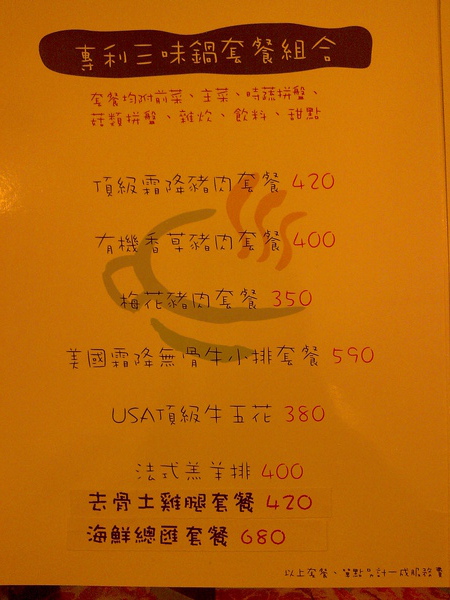 專利三味鍋套餐組合
套餐均附前菜、主菜、時蔬拼盤、
菇類拼盤、雜炊、飲料、甜點
頂級霜降豬肉套餐 420
有機香草豬肉套餐 400
梅花豬肉套餐 350
美國霜降無骨牛小排套餐 590
USA頂級牛五花 380
法式羔羊排 400
去骨土雞腿套餐 420
海鮮總匯套餐 680
以上套餐、單點另計一成服務費